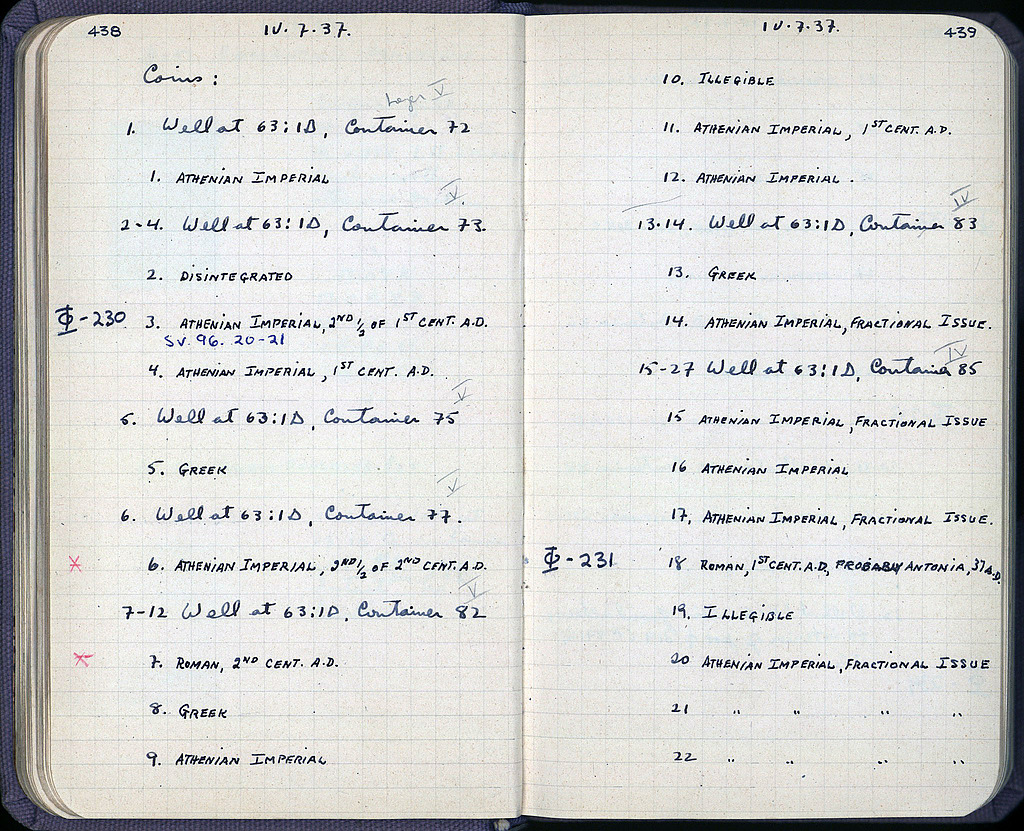 438
IV.7.37.
Coins:
Layer V
1. Well at 63:1Δ, Container 72
1. ATHENIAN IMPERIAL
V.
2-4. Well at 63:1Δ, Container 73.
2. DISINTEGRATED
Φ-230 3. ATHENIAN IMPERIAL, 2ND 1/2 OF 1ST CENT. A.D.
SV. 96. 20-21
4. ATHENIAN IMPERIAL, 1ST CENT. A.D.
V
5. Well at 63:1Δ, Container 75
5. GREEK
V
6. Well at 63:1Δ, Container 77.
6. ATHENIAN IMPERIAL, 2ND 1/2 OF 2ND CENT. A.D.
V
7-12 Well at 63:1Δ, Container 82
7. ROMAN, 2ND CENT. A.D.
8. GREEK
9. ATHENIAN IMPERIAL
IV.7.37.
439
10. ILLEGIBLE
11. ATHENIAN IMPERIAL, 1ST CENT. A.D.
12. ATHENIAN IMPERIAL.
IV
13-14. Well at 63:1Δ, Container 83
13. GREEK
14. ATHENIAN IMPERIAL, FRACTIONAL ISSUE.
IV
15-27 Well at 63:1Δ, Container 85
15 ATHENIAN IMPERIAL, FRACTIONAL ISSUE
16 ATHENIAN IMPERIAL
17. ATHENIAN IMPERIAL, FRACTIONAL ISSUE.
Φ-231 18 ROMAN, 1ST CENT. A.D., PROBABLY ANTONIA, 37 A.D.
19. ILLEGIBLE
20 ATHENIAN IMPERIAL, FRACTIONAL ISSUE
21 " " " "
22 " " " "